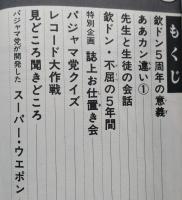 もくじ
欽ドン5周年の意義
ああカン違い①
先生と生徒の会話
欽ドン・不屈の5年間
特別企画 誌上お仕置き会
パジャマ党クイズ
レコード大作戦
見どころ聞きどころ
パジャマ党が開発した スーパー・ウエポン